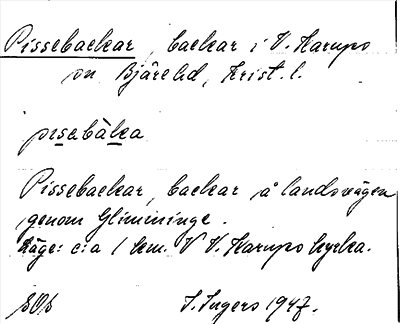 Pissebackar, backar i V. Karups
sn Bjäre hd, Krist. l.
pɪsebàka
Pissebackar, backar å landsvägen
genom Glimminge.
Läge: c:a 1 km. V V. Karups kyrka.
I. Ingers 1947.